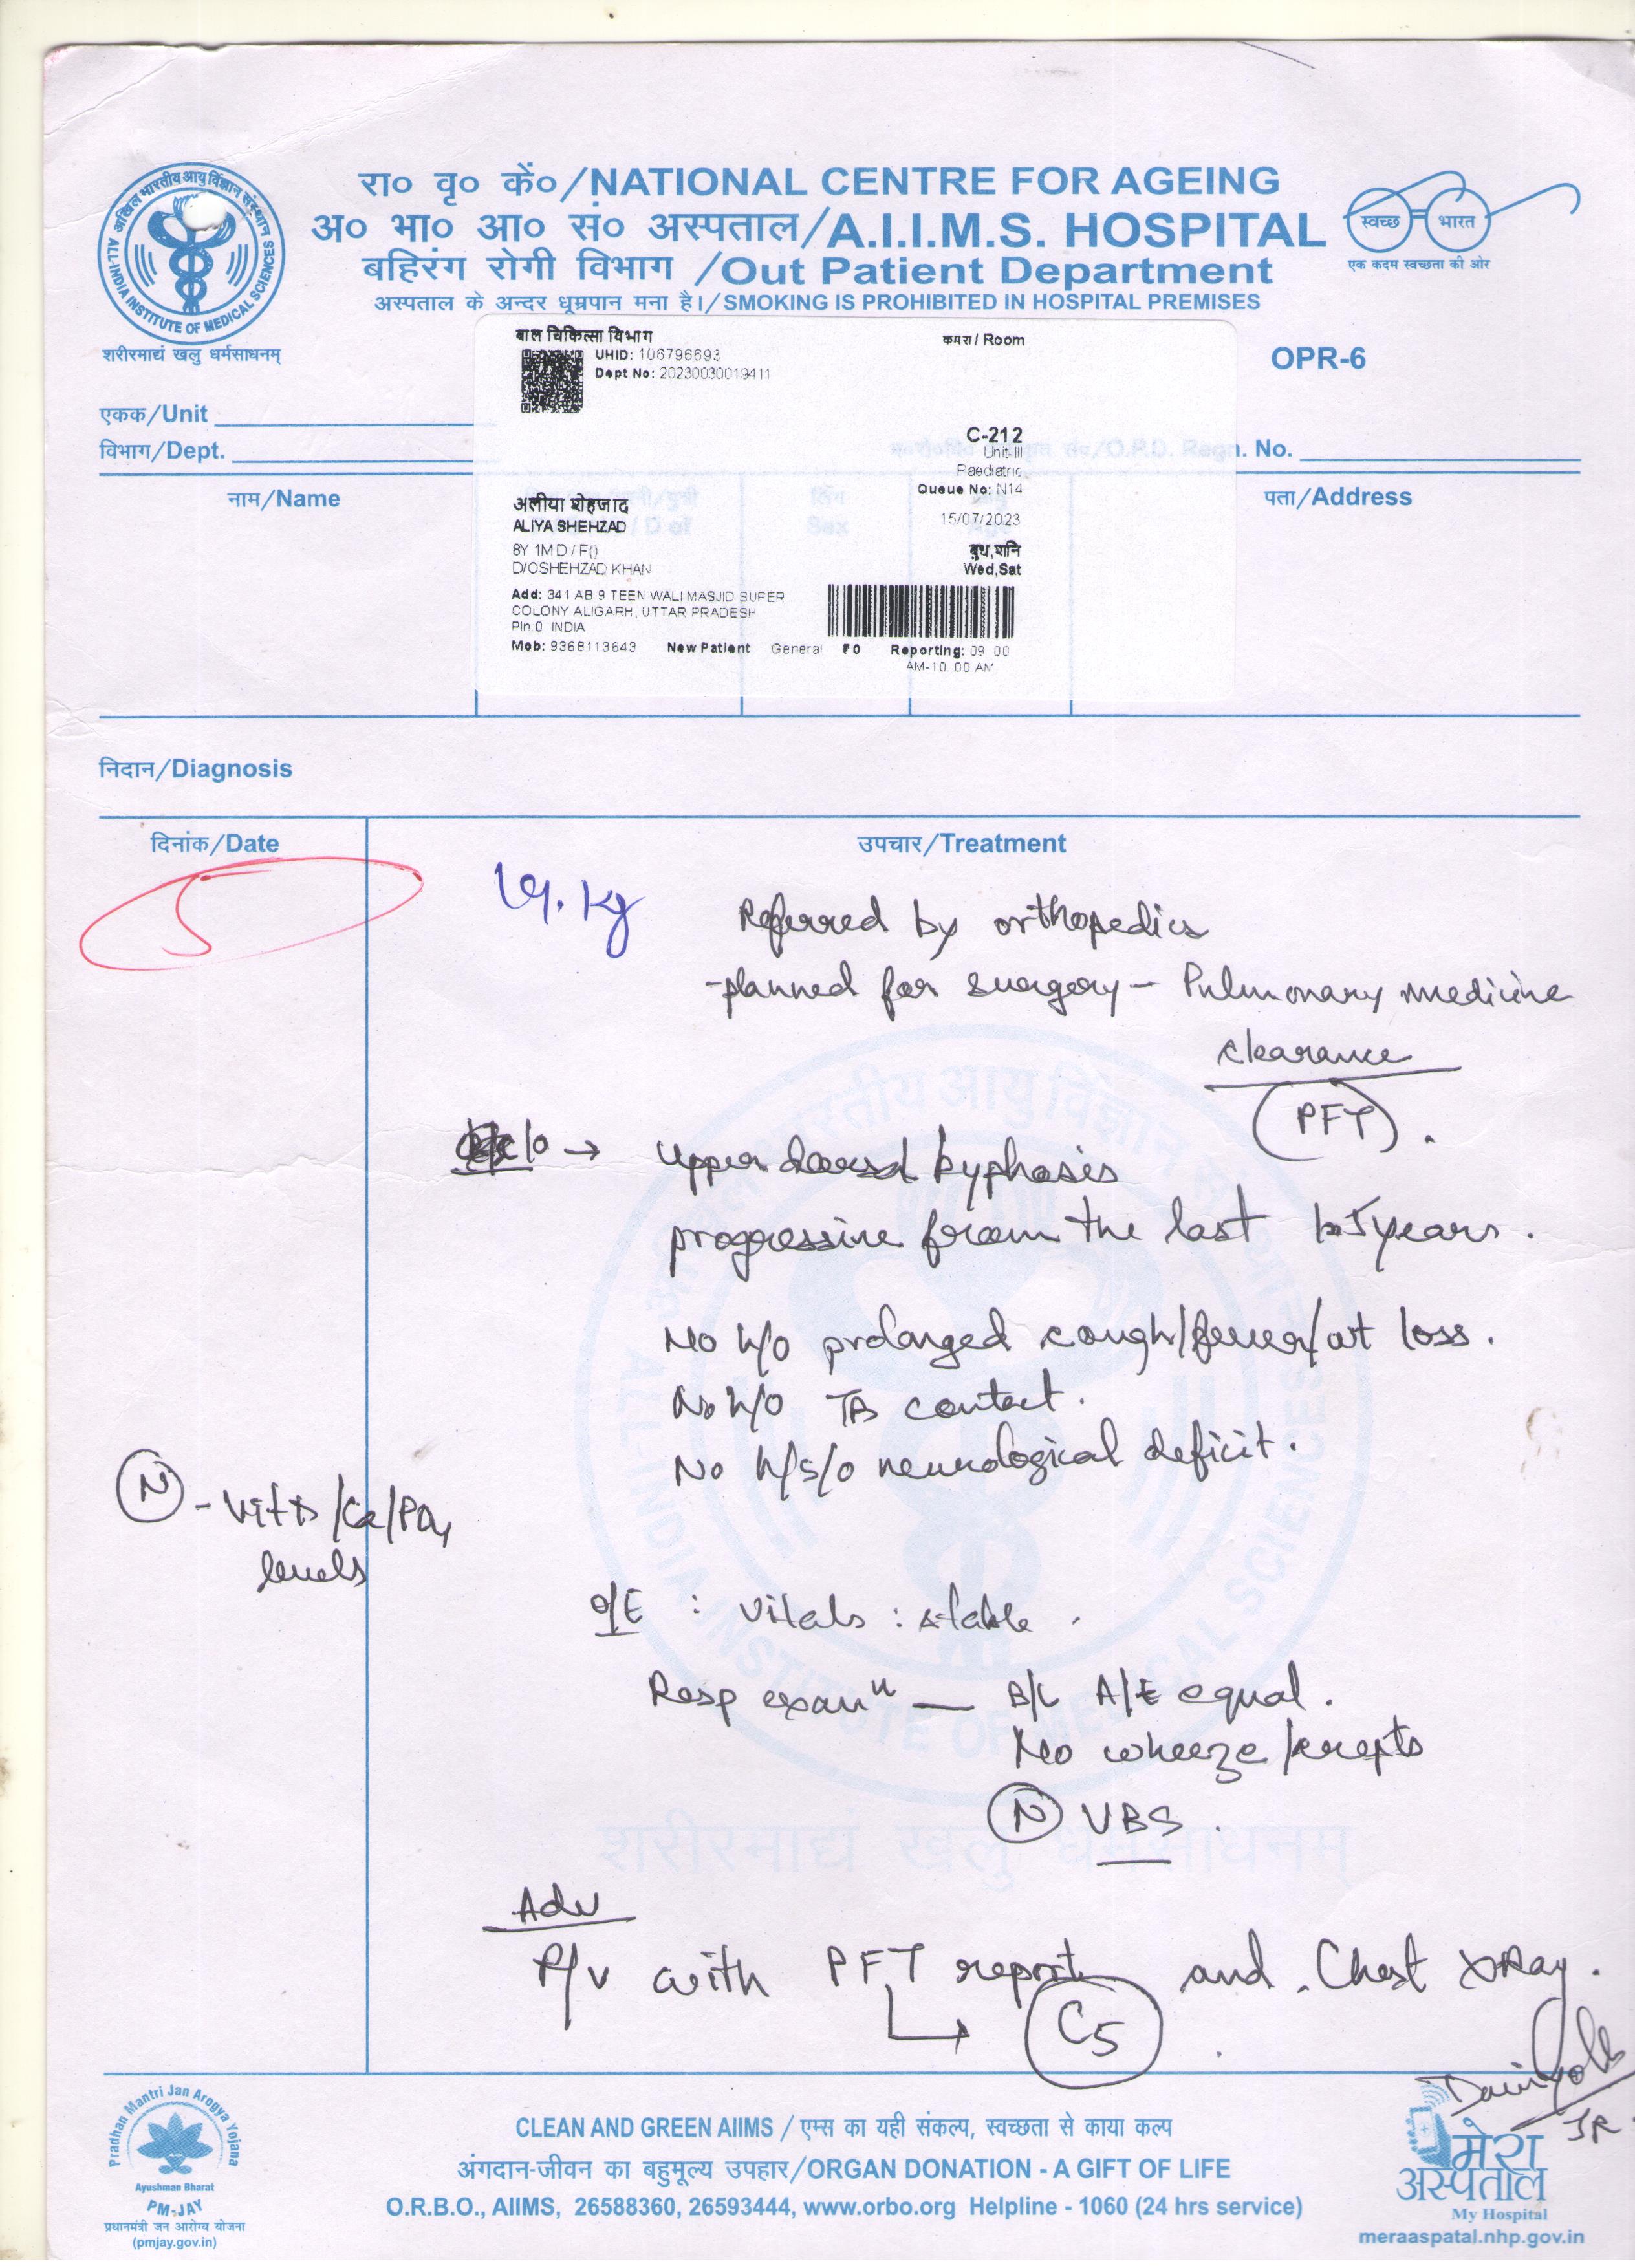 रा० वृ० कें०/NATIONAL CENTRE FOR AGEING
अ० भा० आ० सं० अस्पताल/A.I.I.M.S. HOSPITAL
बहिरंग रोगी विभाग /Out Patient Department
अस्पताल के अन्दर धूम्रपान मना है।/SMOKING IS PROHIBITED IN HOSPITAL PREMISES
अखिल भारतीय आयुर्विज्ञान संस्थान
ALL-INDIA INSTITUTE OF MEDICAL SCIENCES
शरीरमाद्यं खलु धर्मसाधनम्
स्वच्छ भारत
एक कदम स्वच्छता की ओर
बाल चिकित्सा विभाग
कमरा / Room
UHID: 106796693
Dept No: 20230030019411
OPR-6
एकक/Unit
C-212
विभाग/Dept.
O.P.D. Regn. No.
Unit-III
Paediatric
Queue No: N14
नाम/Name
पता/Address
अलीया शेहजाद
ALIYA SHEHZAD
15/07/2023
8Y 1M D / F()
बुध,शनि
D/OSHEHZAD KHAN
Wed,Sat
Add: 341 AB 9 TEEN WALI MASJID SUPER
COLONY ALIGARH, UTTAR PRADESH
Pin.0 INDIA
Mob: 9368113643 New Patient General ₹0 Reporting: 09 00
AM-10 00 AM
निदान/Diagnosis
दिनांक/Date
उपचार/Treatment
5
19. Kg
Referred by orthopedics
-planned for surgery - Pulmonary medicine
clearance
(PFT).
c/o → Upper dorsal kyphosis
progressive from the last years.
No h/o prolonged cough/fever/wt loss.
No h/o TB contact.
No h/s/o neurological deficit.
(N) - Vit D /Ca/PO4
levels
O/E : Vitals : stable.
Resp examn — B/L A/E equal.
No wheeze/crepts
(N) VBS.
Adv
R/v with PFT report and Chest XRay.
C5
JR
शरीरमाद्यं खलु धर्मसाधनम्
Pradhan Mantri Jan Arogya Yojana
Ayushman Bharat
PM-JAY
प्रधानमंत्री जन आरोग्य योजना
(pmjay.gov.in)
CLEAN AND GREEN AIIMS / एम्स का यही संकल्प, स्वच्छता से काया कल्प
अंगदान-जीवन का बहुमूल्य उपहार/ORGAN DONATION - A GIFT OF LIFE
O.R.B.O., AIIMS, 26588360, 26593444, www.orbo.org Helpline - 1060 (24 hrs service)
मेरा
अस्पताल
My Hospital
meraaspatal.nhp.gov.in